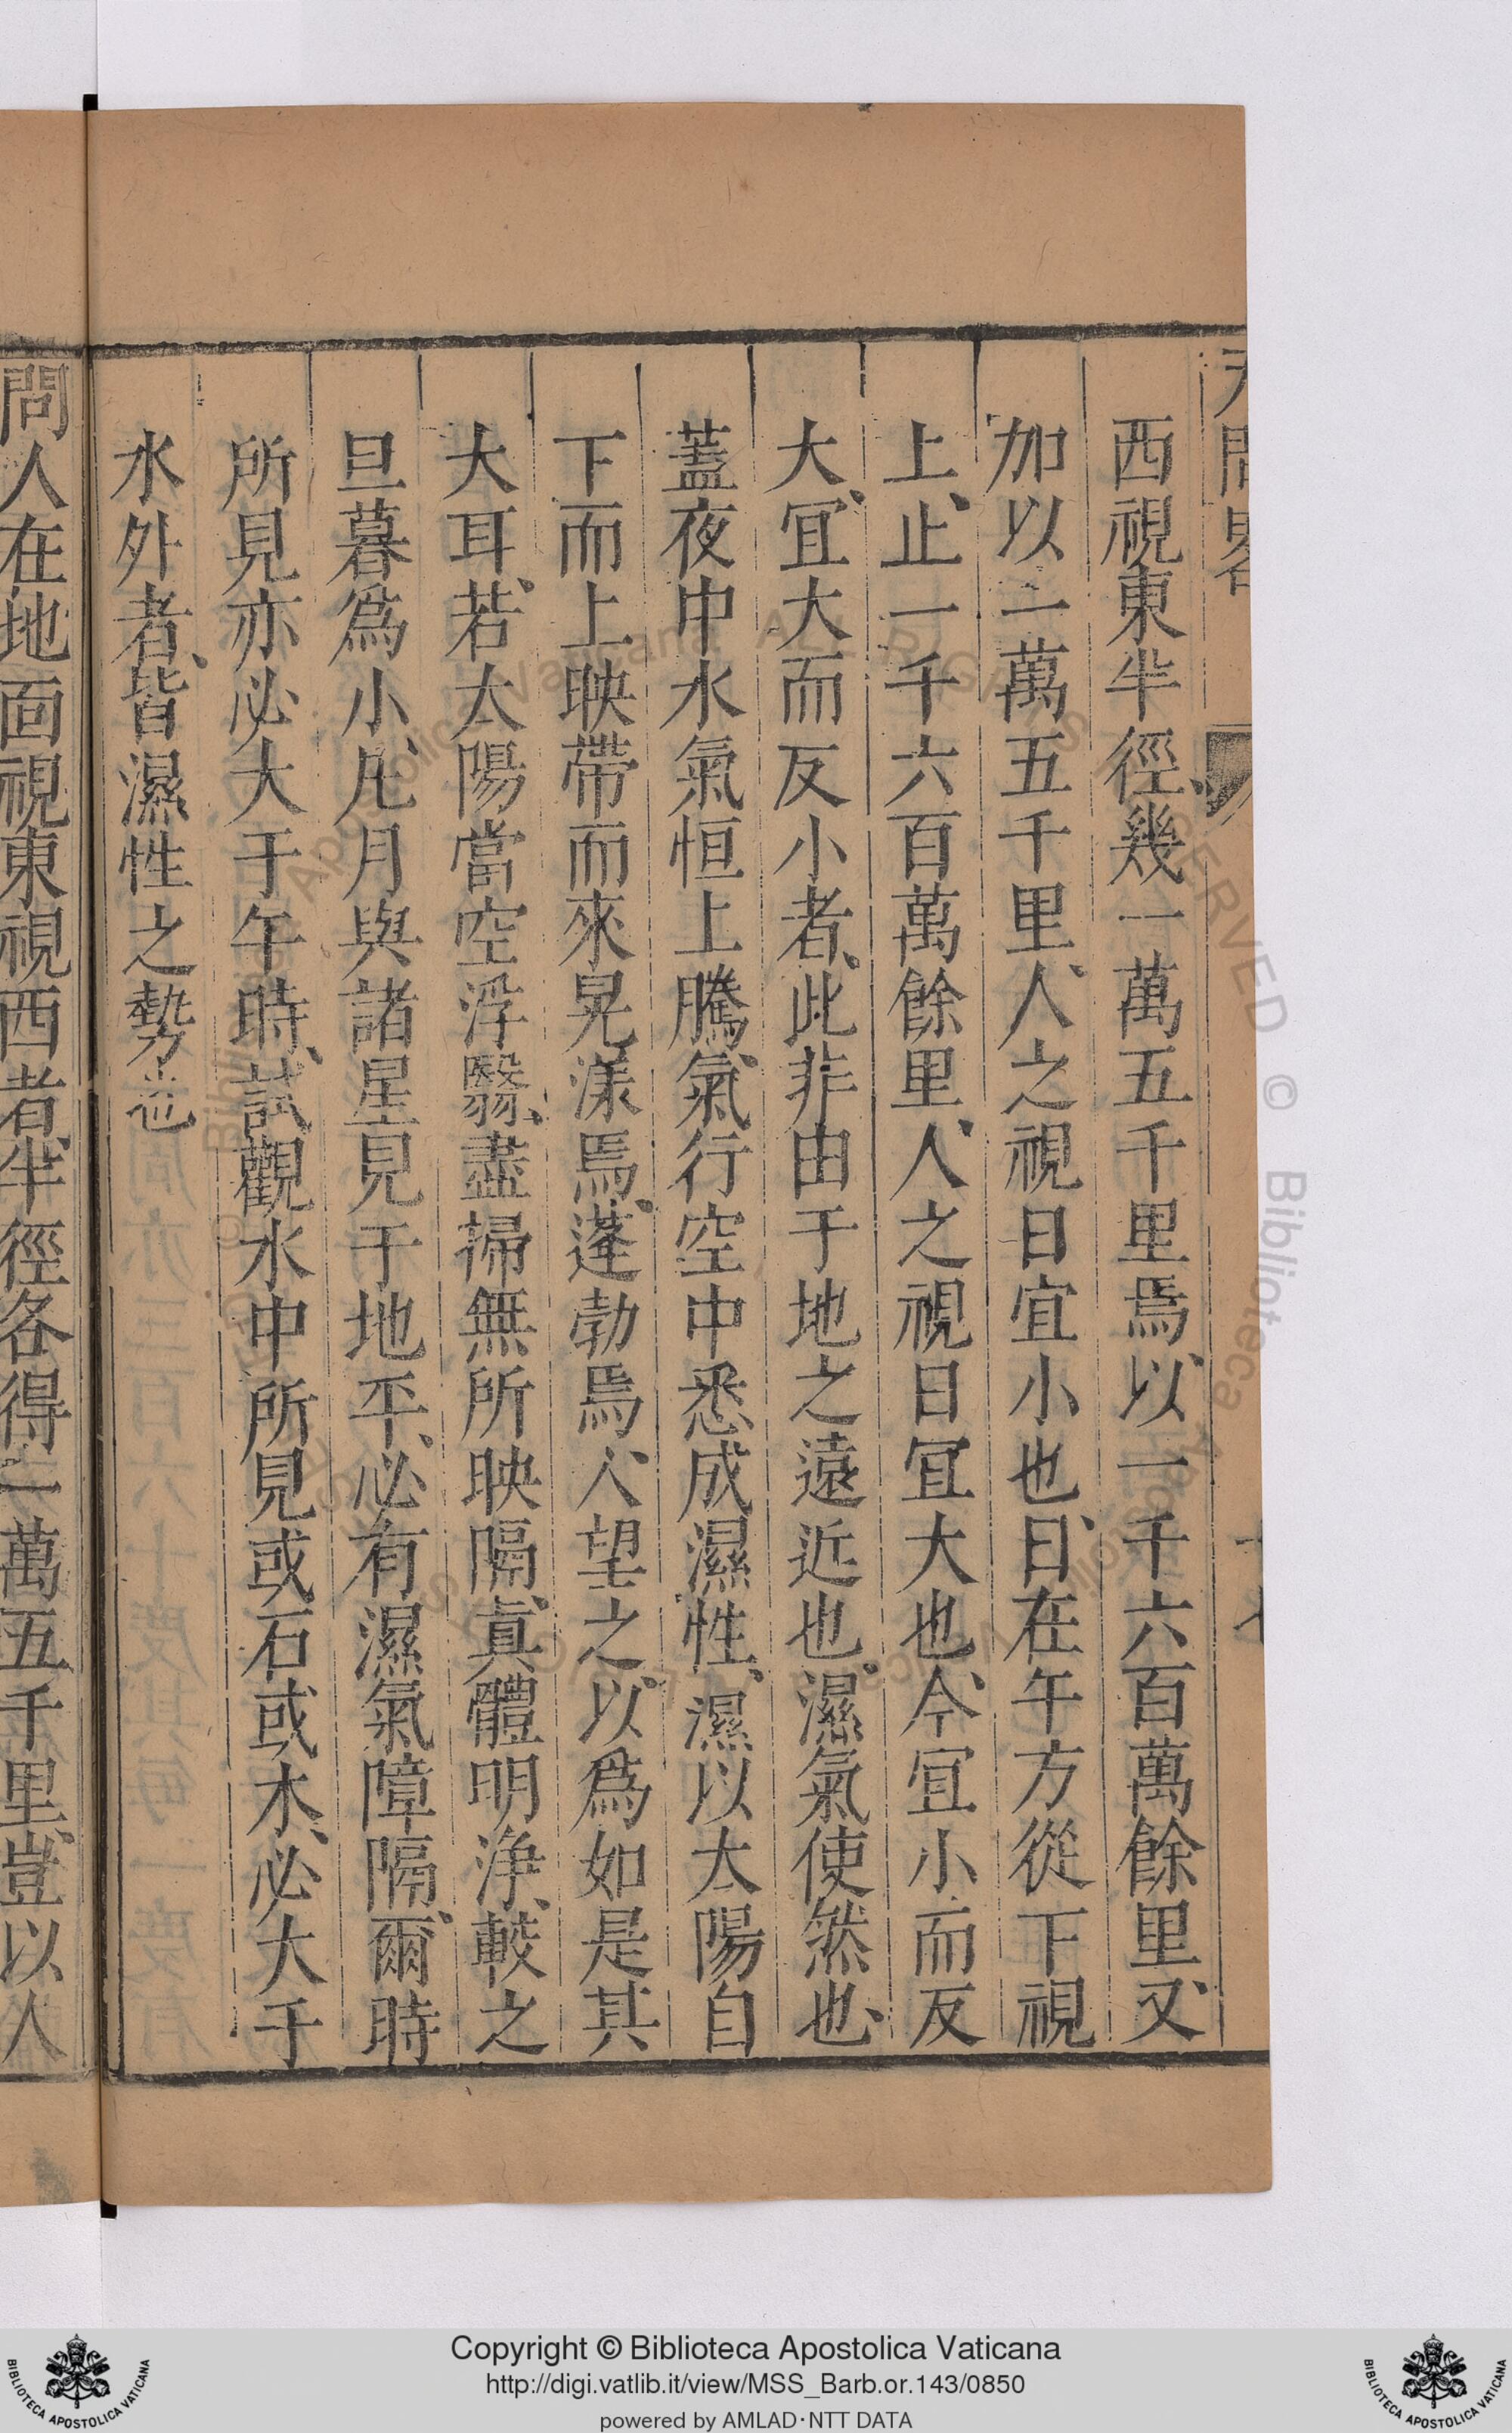 天問畧
西視東半徑、幾一萬五千里焉、以一千六百萬餘里、又、
加以一萬五千里、人之視日宜小也、日、在午方從下視
上、止一千六百萬餘里、人之視日宜大也、今宜小而反
大、宜大而反小者、此非由于地之遠近也。濕氣使然也、
蓋夜中水氣恒上騰、氣行空中悉成濕性、濕以太陽自
下而上映帶而來晃漾焉、蓬勃焉、人望之、以爲如是其
大耳、若太陽當空浮翳、盡掃無所映隔、眞體明浄、較之
旦暮爲小、凡月與諸星見于地平、必有濕氣障隔、爾時
所見亦必大于午時、試觀水中所見或石或木、必大于
水外者、皆濕性之勢也
問人在地面視東視西者、半徑各得一萬五千里、豈以人
Copyright © Biblioteca Apostolica Vaticana
http://digi.vatlib.it/view/MSS_Barb.or.143/0850
powered by AMLAD·NTT DATA
BIBLIOTECA APOSTOLICA VATICANA
BIBLIOTECA APOSTOLICA VATICANA